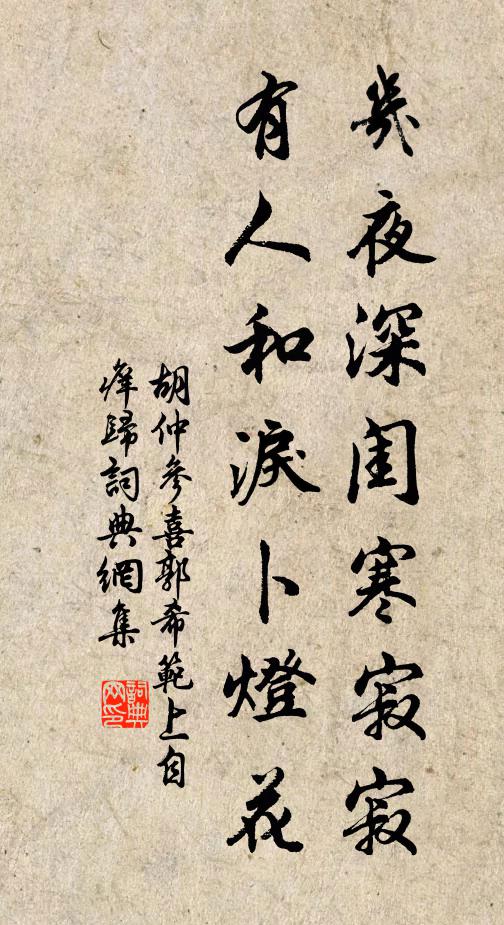 幾夜深閨寒寂寂
有人和淚卜燈花
胡仲參喜郭希範上自
庠歸詞典網集
詞典
网印